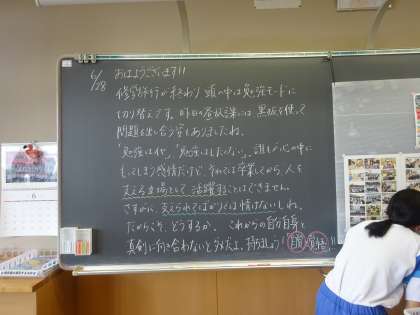 6/28
おはようございます!!
修学旅行が終わり 頭の中は勉強モードに
切り替えです。昨日の放課後には、黒板を使って
問題を出し合う姿もありましたね。
「勉強はイヤ」「勉強はしたくない」、誰もが心の中に
もってしまう感情だけど、それでは卒業してから、人を
支える立場として活躍することはできません。
さすがに、支えられてばかりでは情けないしね。
だからこそ、どうするか、これからの自分自身と
真剣に向き合わないとダメだよ。
6